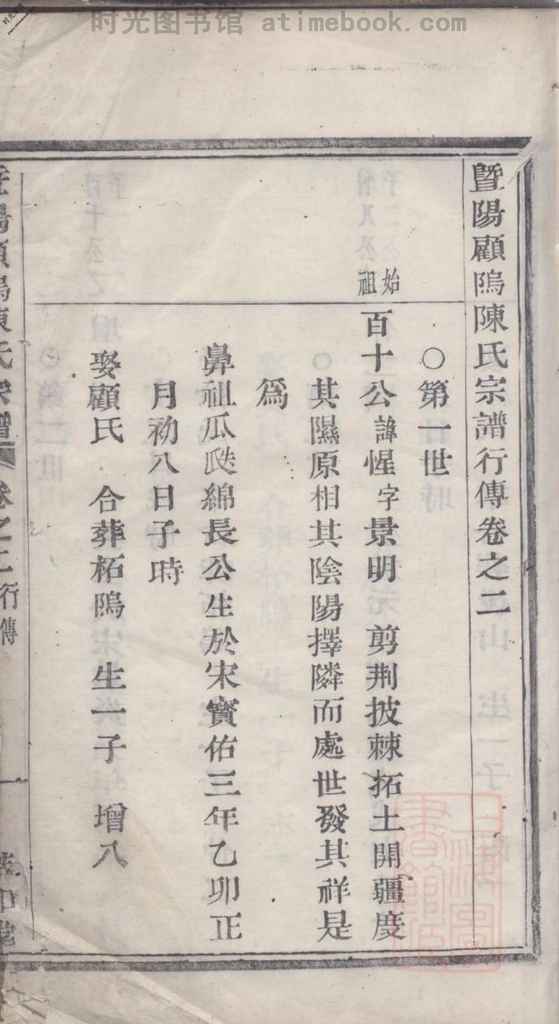 时光图书馆 atimebook.com
暨陽顧隝陳氏宗譜行傳卷之二
○第一世
始祖
百十公諱惺字景明 剪荆披棘拓土開疆度
其隰原相其陰陽擇隣而處世發其祥是
爲
鼻祖瓜瓞綿長公生於宋寳佑三年乙卯正
月初八日子時
娶顧氏 合葬柘隝生一子 增八
暨陽顧隝陳氏宗譜 卷之二 行傳 一